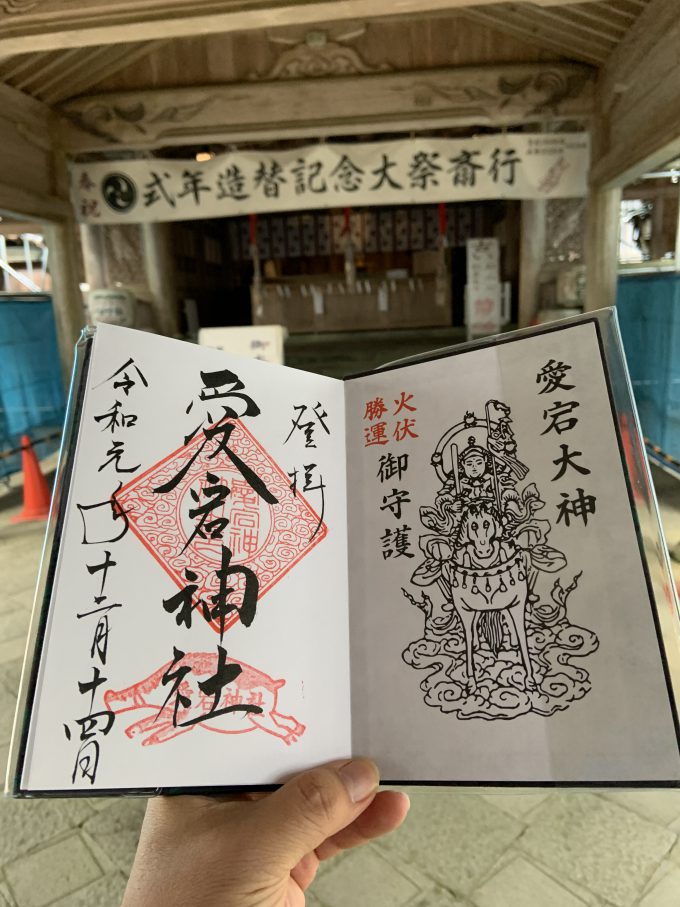 奉祝
式年造替記念大祭斎行
登拝
愛宕神社
令和元年十二月十四日
愛宕神社
愛宕大神
火伏
勝運
御守護